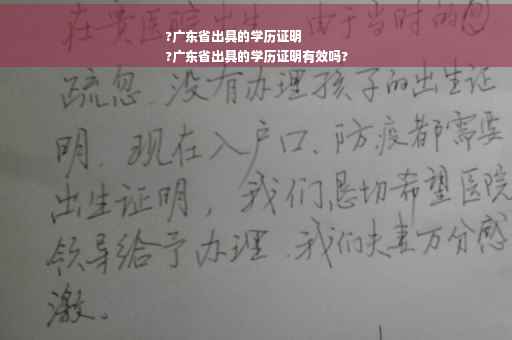 在贵医院出生，由于当时的
?广东省出具的学历证明
?广东省出具的学历证明有效吗?
疏忽，没有办理孩子的出生证
明．现在入户口、防疫都需要
出生证明，我们恳切希望医院
领导给予办理．我们夫妻万分感
激。